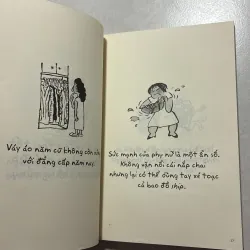 Váy áo năm cũ không còn hợp
với đẳng cấp năm nay.
Sức mạnh của phụ nữ là một ẩn số.
Không vặn nổi cái nắp chai
nhưng lại có thể dùng tay xé toạc
cả bao đồ ship.